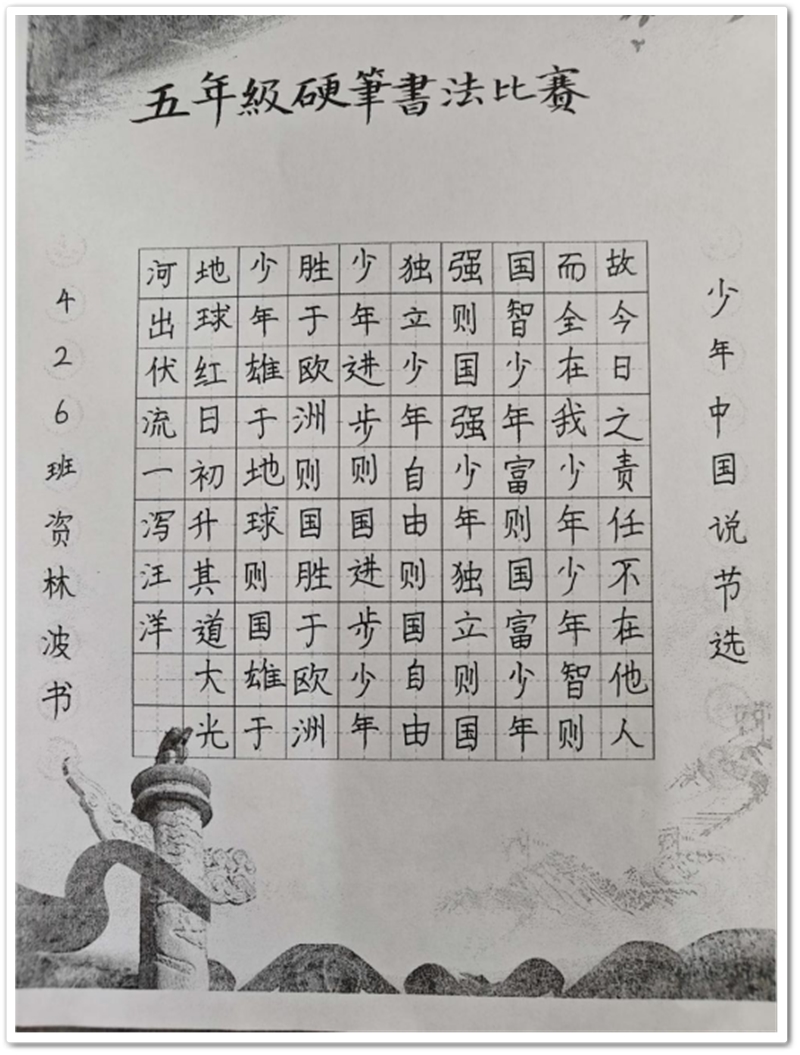 五年級硬筆書法比賽
少年中国说节选
故今日之责任不在他人
而全在我少年少年智则
国智少年富则国富少年
强则国强少年独立则国
独立少年自由则国自由
少年进步则国进步少年
胜于欧洲则国胜于欧洲
少年雄于地球则国雄于
地球红日初升其道大光
河出伏流一泻汪洋
426班资林波书